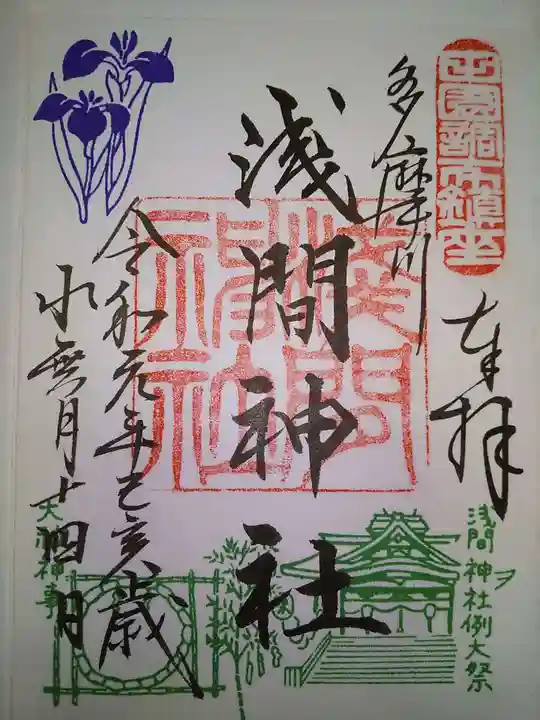 田園調布鎮座
奉拝
多摩川
浅間神社
浅間神社
令和元年己亥歳
水無月十四日
浅間神社例大祭
大祓神事